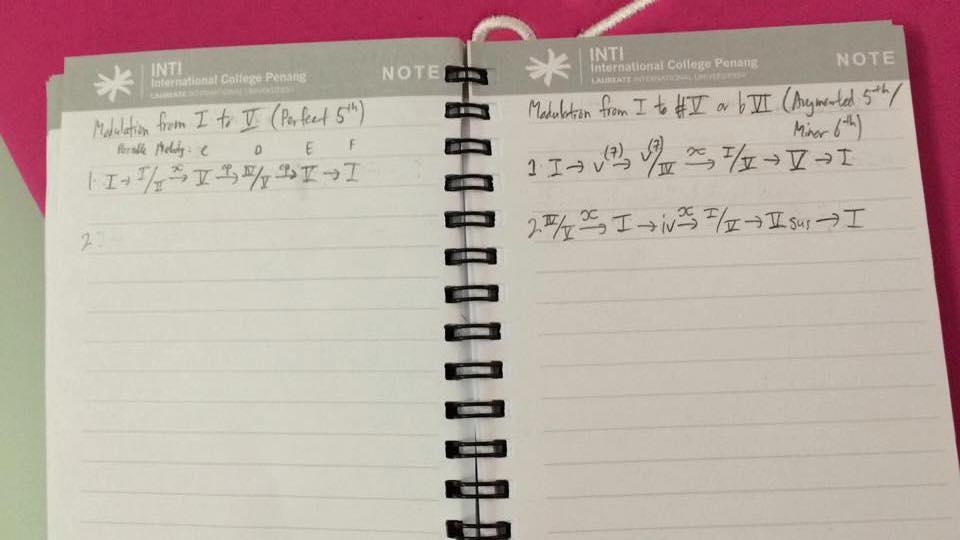 INTI
International College Penang
LAUREATE INTERNATIONAL UNIVERSITIES
NOTE
Modulation from I to V (Perfect 5th)
Possible Melody: C D E F
1. I → I/II x→ V cp→ IV/V cp→ V → I
2.
INTI
International College Penang
LAUREATE INTERNATIONAL UNIVERSITIES
NOTE
Modulation from I to #V or bVI (Augmented 5th/
Minor 6th)
1. I → v(7) → v(7)/IV x→ I/V → V → I
2. IV/V x→ I → iv x→ I/V → V sus → I